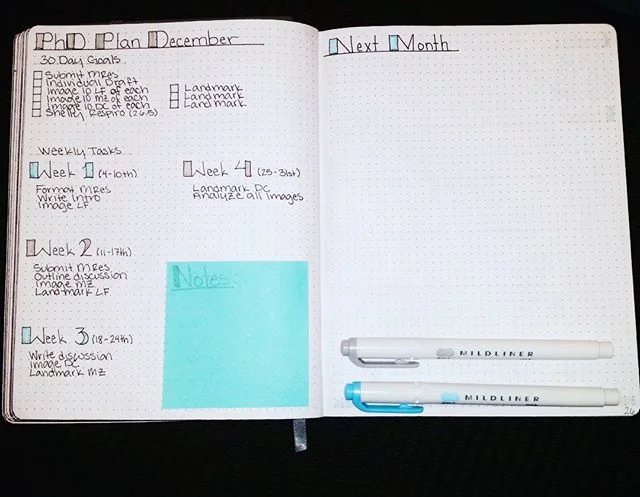 PhD Plan December
30 Day Goals
Submit MRes
Individual Draft
Image 10 LF of each
Image 10 MZ of each
Image 10 DC of each
Shelley Respiro (26.5)
Landmark
Landmark
Landmark
Weekly Tasks
Week 1 (4-10th)
Format MRes
Write Intro
Image LF
Week 2 (11-17th)
Submit MRes
Outline discussion
Image MZ
Landmark LF
Week 3 (18-24th)
Write discussion
Image DC
Landmark MZ
Week 4 (25-31st)
Landmark DC
Analyze all images
Notes:
Next Month
MILDLINER
MILDLINER
26